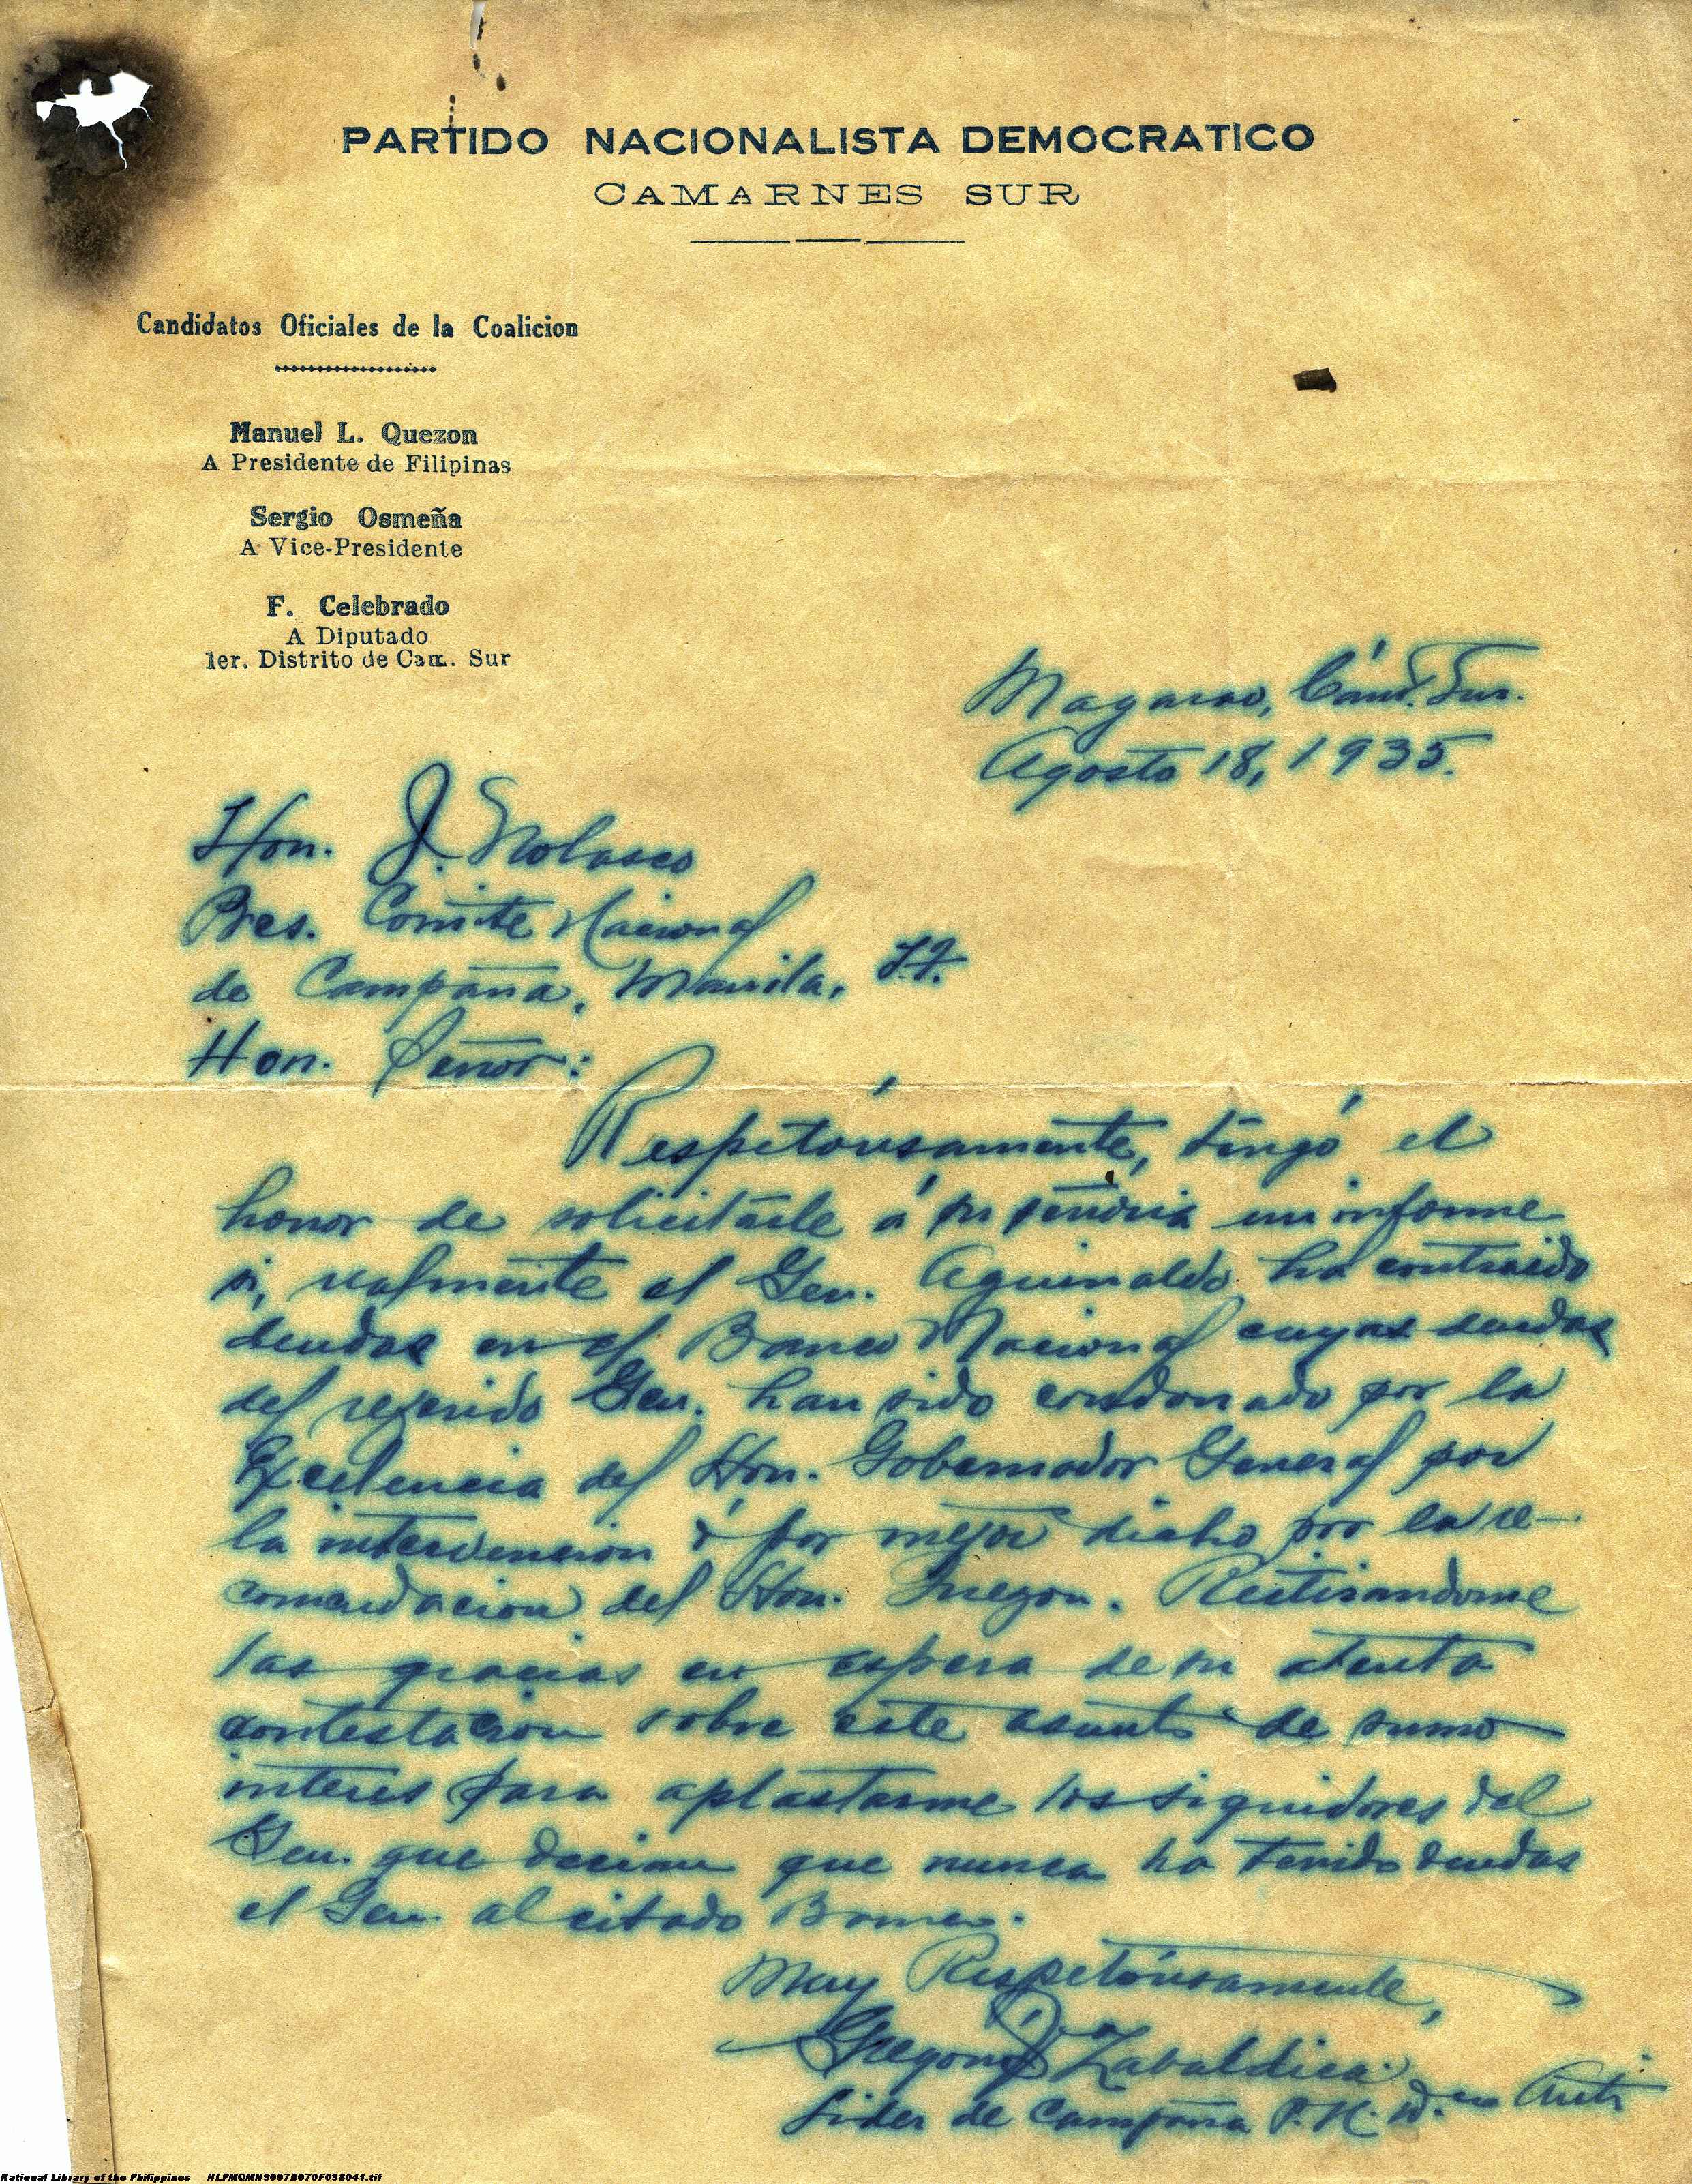 PARTIDO NACIONALISTA DEMOCRATICO
CAMARNES SUR
Candidatos Oficiales de la Coalicion
Manuel L. Quezon
A Presidente de Filipinas
Sergio Osmeña
A Vice-Presidente
F. Celebrado
A Diputado
1er. Distrito de Cam. Sur
Magarao, Cam. Sur.
Agosto 18, 1935.
Hon. J. Nolasco
Pres. Comite Nacional
de Campaña, Manila, I.F.
Hon. Señor:
Respetousamente, tengo el
honor de solicitarle á su señoria un informe
si, realmente el Gen. Aguinaldo ha contraido
deudas en el Banco Nacional cuyas deudas
del referido Gen. han sido condonado por la
Excelencia del Hon. Gobernador General por
la intervencion ó por mejor dicho por la re-
comendacion del Hon. Quezon. Reitirandome
las gracias en espera de su atenta
contestacion sobre este asunto de sumo
interes para aplastarme los siguidores del
Gen. que decian que nunca ha tenido deudas
el Gen. al citado Banco.
Muy Respetousamente,
Gregorio Zabaldica
Lider de Campaña P. N. D.
National Library of the Philippines NLPMQMNS007B070F038041.tif